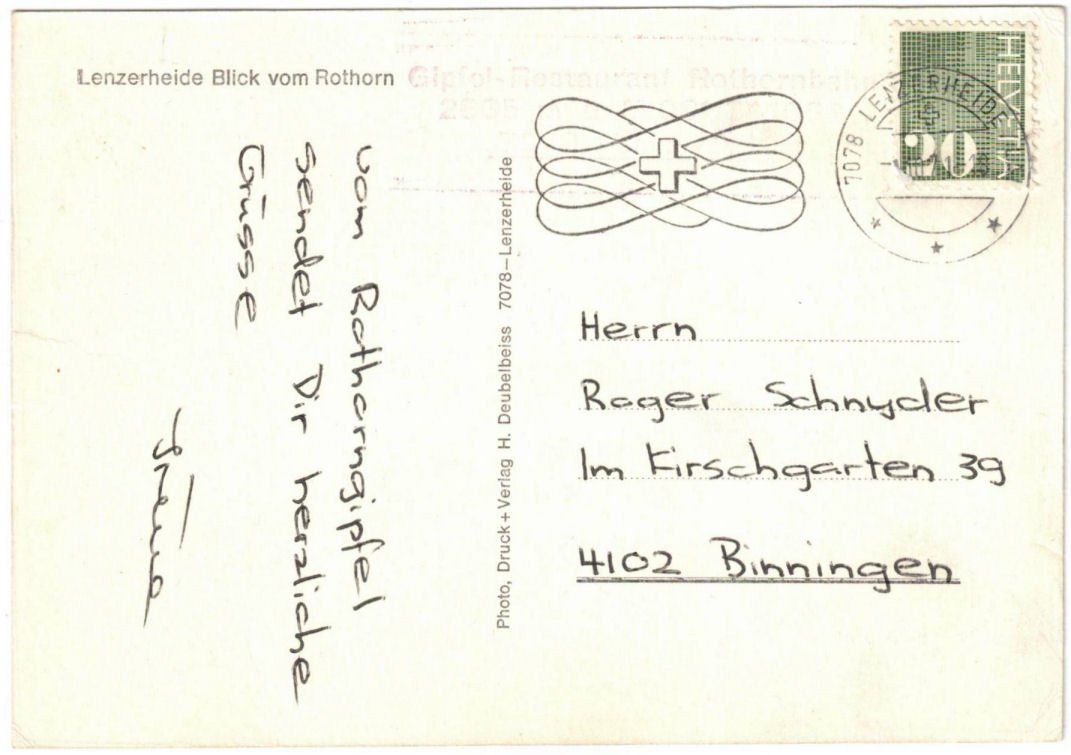 Lenzerheide Blick vom Rothorn
Gipfel-Restaurant Rothornbahn
vom Rothorngipfel
sendet Dir herzliche
Grüsse
Photo, Druck+Verlag H. Deubelbeiss 7078–Lenzerheide
HELVETIA
20
7078 LENZERHEIDE
Herrn
Roger Schnyder
Im Kirschgarten 39
4102 Binningen